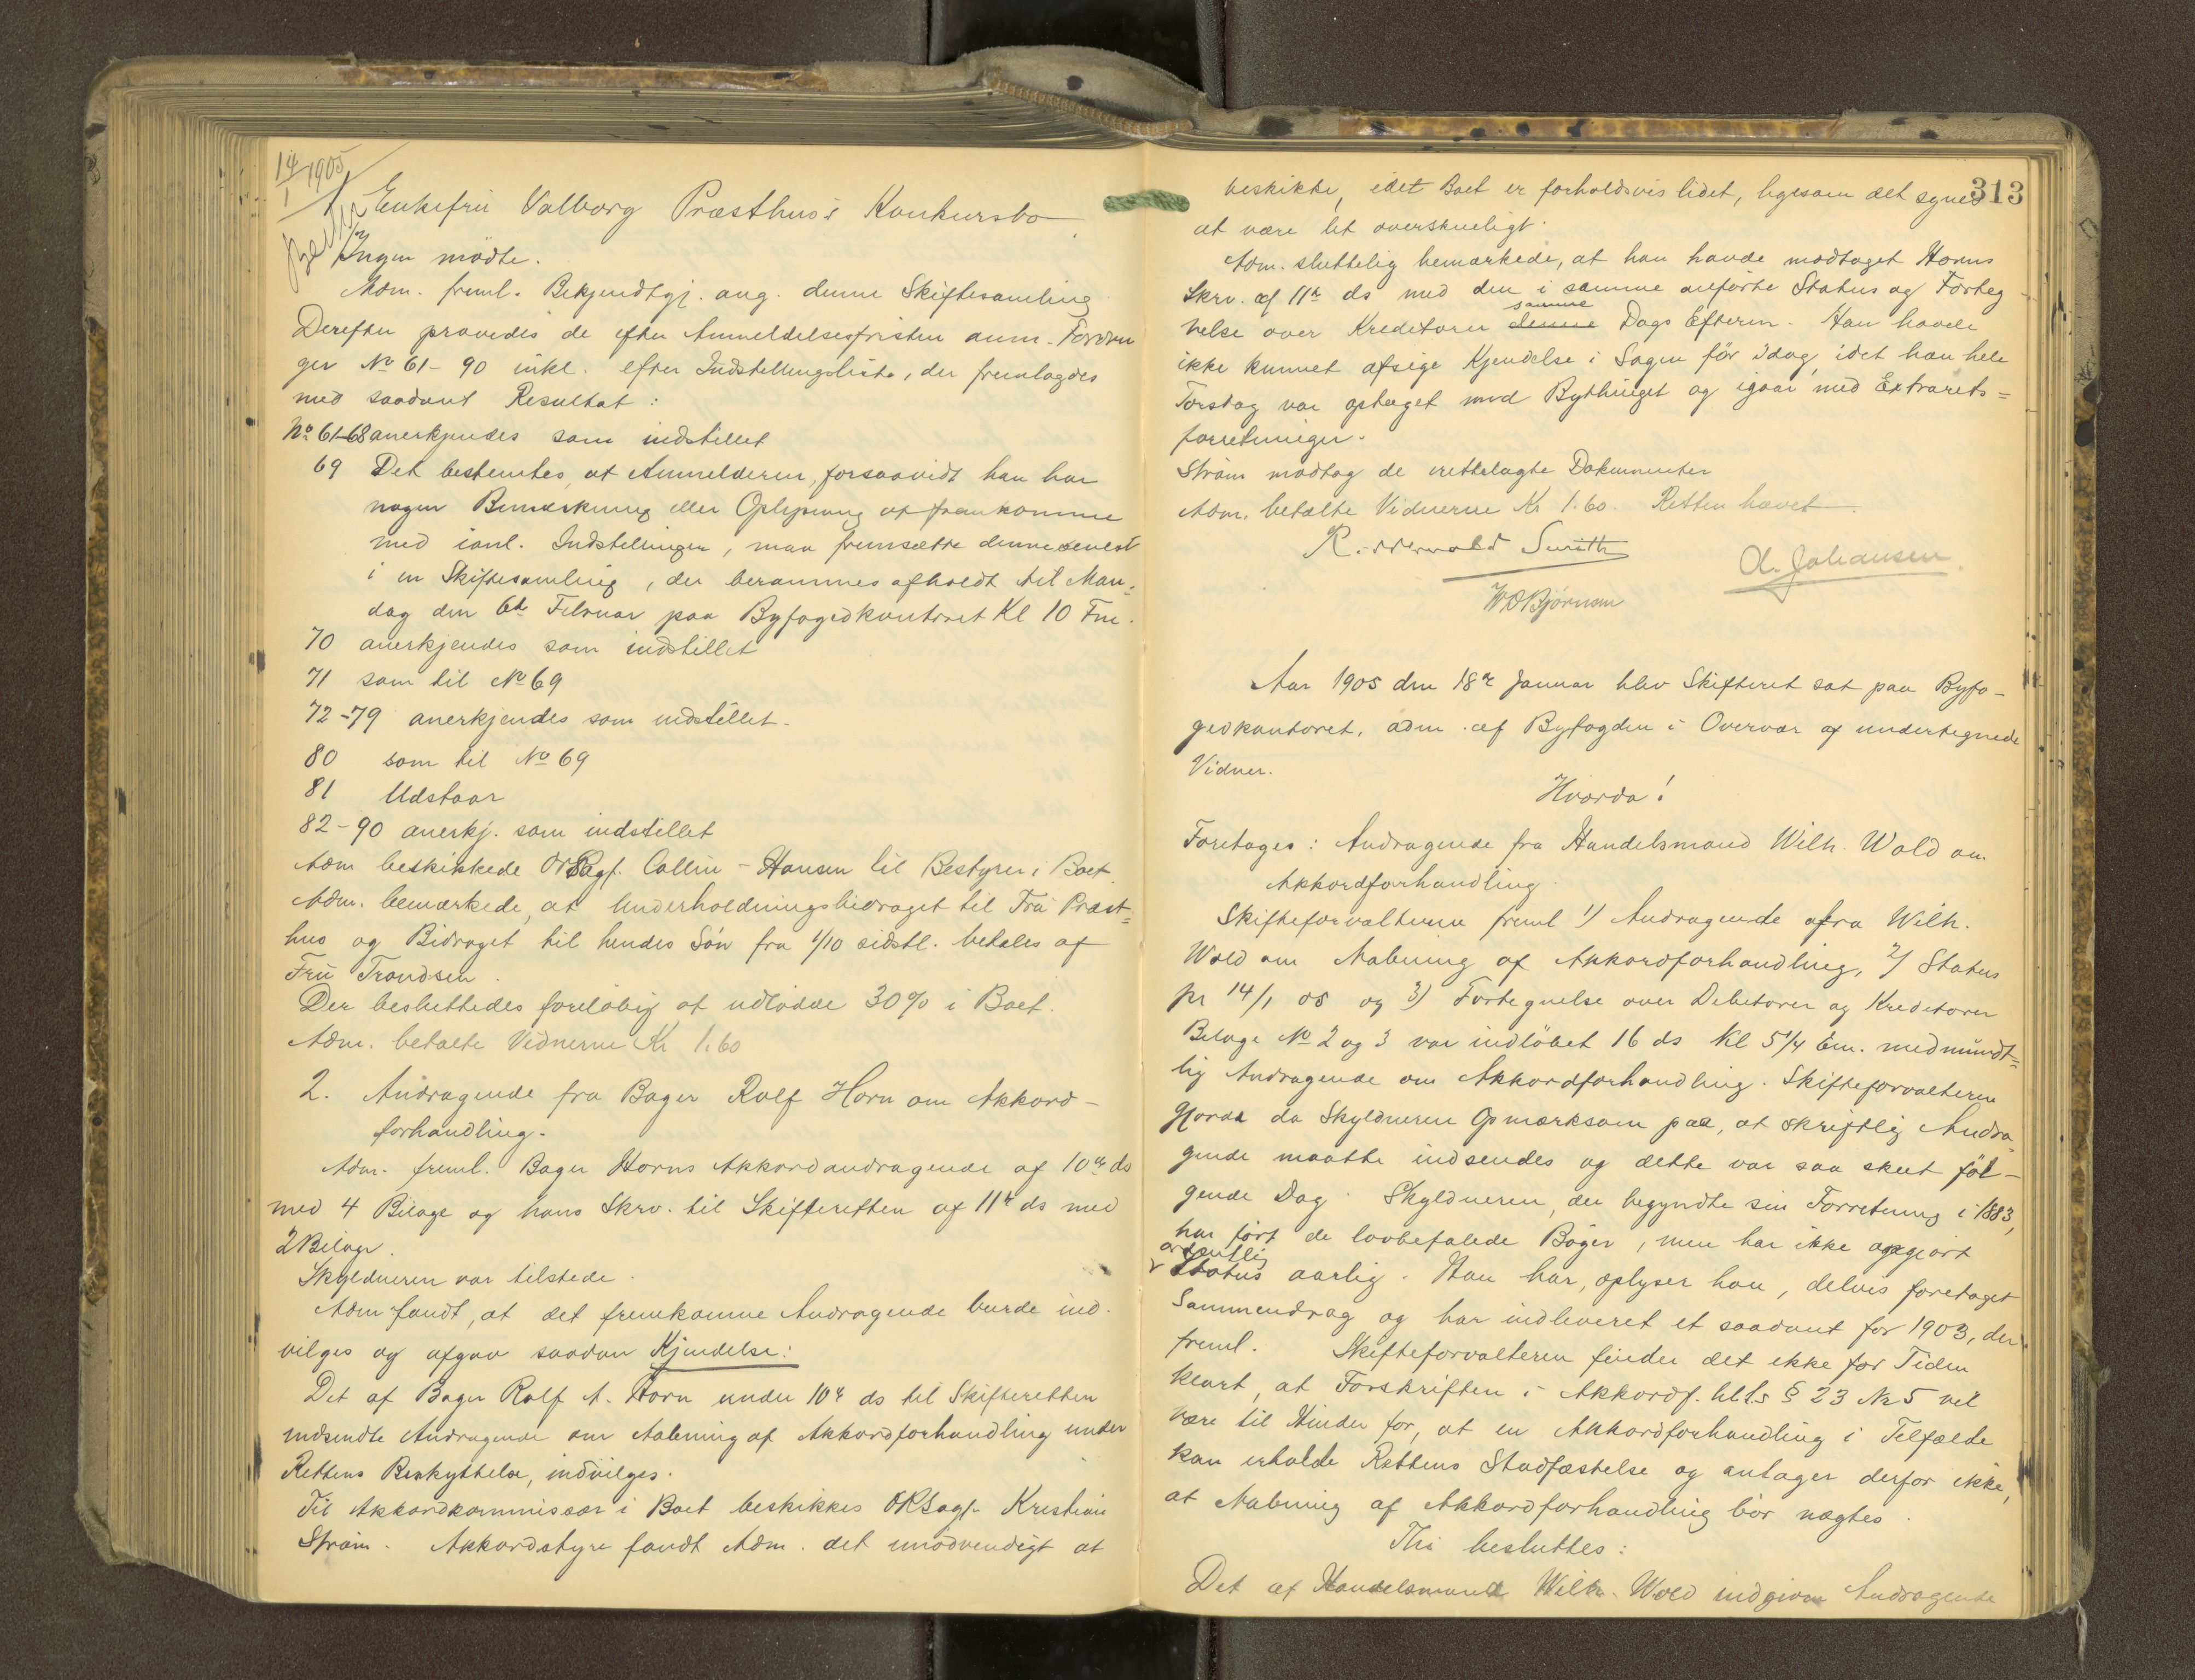 14/1 1905
1/ Enkefru Valborg Præsthus's Konkursbo.
Ingen mødte.
Adm. freml. Bekjendtgj. ang. denne Skiftesamling
Derefter prøvedes de efter Anmeldelsesfristen anm. Fordrin
ger No 61-90 inkl. efter Indstillingsliste, der fremlagdes
med saadant Resultat:
No 61-68 anerkjendes som indstillet
69 Det bestemtes, at Anmelderen, forsaavidt han har
nogen Bemærkning eller Oplysning at fremkomme
med ianl. Indstillingen, maa fremsætte denne senest
i en Skiftesamling, der berammes afholdt til Man=
dag den 6te Februar paa Byfogedkontoret Kl 10 Fm.
70 anerkjendes som indstillet
71 som til No 69
72-79 anerkjendes som indstillet.
80 som til No 69
81 Udstaar
82-90 anerkj. som indstillet
Adm beskikkede ORSagf. Collin-Hansen til Bestyrer i Boet.
Adm. bemærkede, at Underholdningsbidraget til Fru Præst=
hus og Bidraget til hendes Søn fra 1/10 sidstl. betales af
Fru Trondsen.
Der besluttedes foreløbig at udlodde 30% i Boet.
Adm. betalte Vidnerne Kr 1.60
2. Andragende fra Bager Rolf Horn om Akkord-
forhandling.
Adm. freml. Bager Horns Akkordandragende af 10de ds
med 4 Bilage og hans Skrv. til Skifteretten af 11te ds med
2 Bilage.
Skyldneren var tilstede.
Adm fandt, at det fremkomne Andragende burde ind-
vilges og afgav saadan Kjendelse:
Det af Bager Rolf A. Horn under 10de ds til Skifteretten
indsendte Andragende om Aabning af Akkordforhandling under
Rettens Beskyttelse, indvilges.
Til Akkordkommissær i Boet beskikkes ORSagf. Kristian
Strøm. Akkordstyre fandt Adm. det unødvendigt at
313
beskikke, idet Boet er forholdsvis lidet, ligesom det synes
at være let overskueligt.
Adm. sluttelig bemærkede, at han havde modtaget Horns
Skrv. af 11te ds med den i samme anførte Status og Forteg
nelse over Kreditorer denne samme Dags Efterm. Han havde
ikke kunnet afsige Kjendelse i Sagen før idag, idet han hele
Torsdag var optaget med Bythinget og igaar med Extrarets=
forretninger.
Strøm modtog de irettelagte Dokumenter
Adm. betalte Vidnerne Kr 1.60. Retten hævet.
Ridderwold Smith
A. Johansen
W O Bjørnson
Aar 1905 den 18de Januar blev Skifteret sat paa Byfo-
gedkontoret, adm. af Byfogden i Overvær af undertegnede
Vidner.
Hvorda!
Foretages: Andragende fra Handelsmand Wilh. Wold om
Akkordforhandling.
Skifteforvalteren freml 1) Andragende afra Wilh.
Wold om Aabning af Akkordforhandling, 2) Status
pr 14/1 05 og 3) Fortegnelse over Debitorer og Kreditorer
Bilage No 2 og 3 var indløbet 16 ds Kl 5 1/4 Em. med mundt=
lig Andragende om Akkordforhandling. Skifteforvalteren
gjorde da Skyldneren Opmærksom paa, at skriftlig Andra
gende maatte indsendes og dette var saa skeet føl-
gende Dag. Skyldneren, der begyndte sin Forretning i 1883,
har ført de lovbefalede Bøger, men har ikke opgjort
ordentlig
v Status aarlig. Han har, oplyser han, delvis foretaget
Sammendrag og har indleveret et saadant for 1903, der
freml. Skifteforvalteren finder det ikke for Tiden
klart, at Forskriften i Akkordf. hl.l.s § 23 No 5 vil
være til Hinder for, at en Akkordforhandling i Tilfælde
kan erholde Rettens Stadfæstelse og antager derfor ikke,
at Aabning af Akkordforhandling bør nægtes.
Thi besluttes:
Det af Handelsmand Wilh. Wold indgivne Andragende